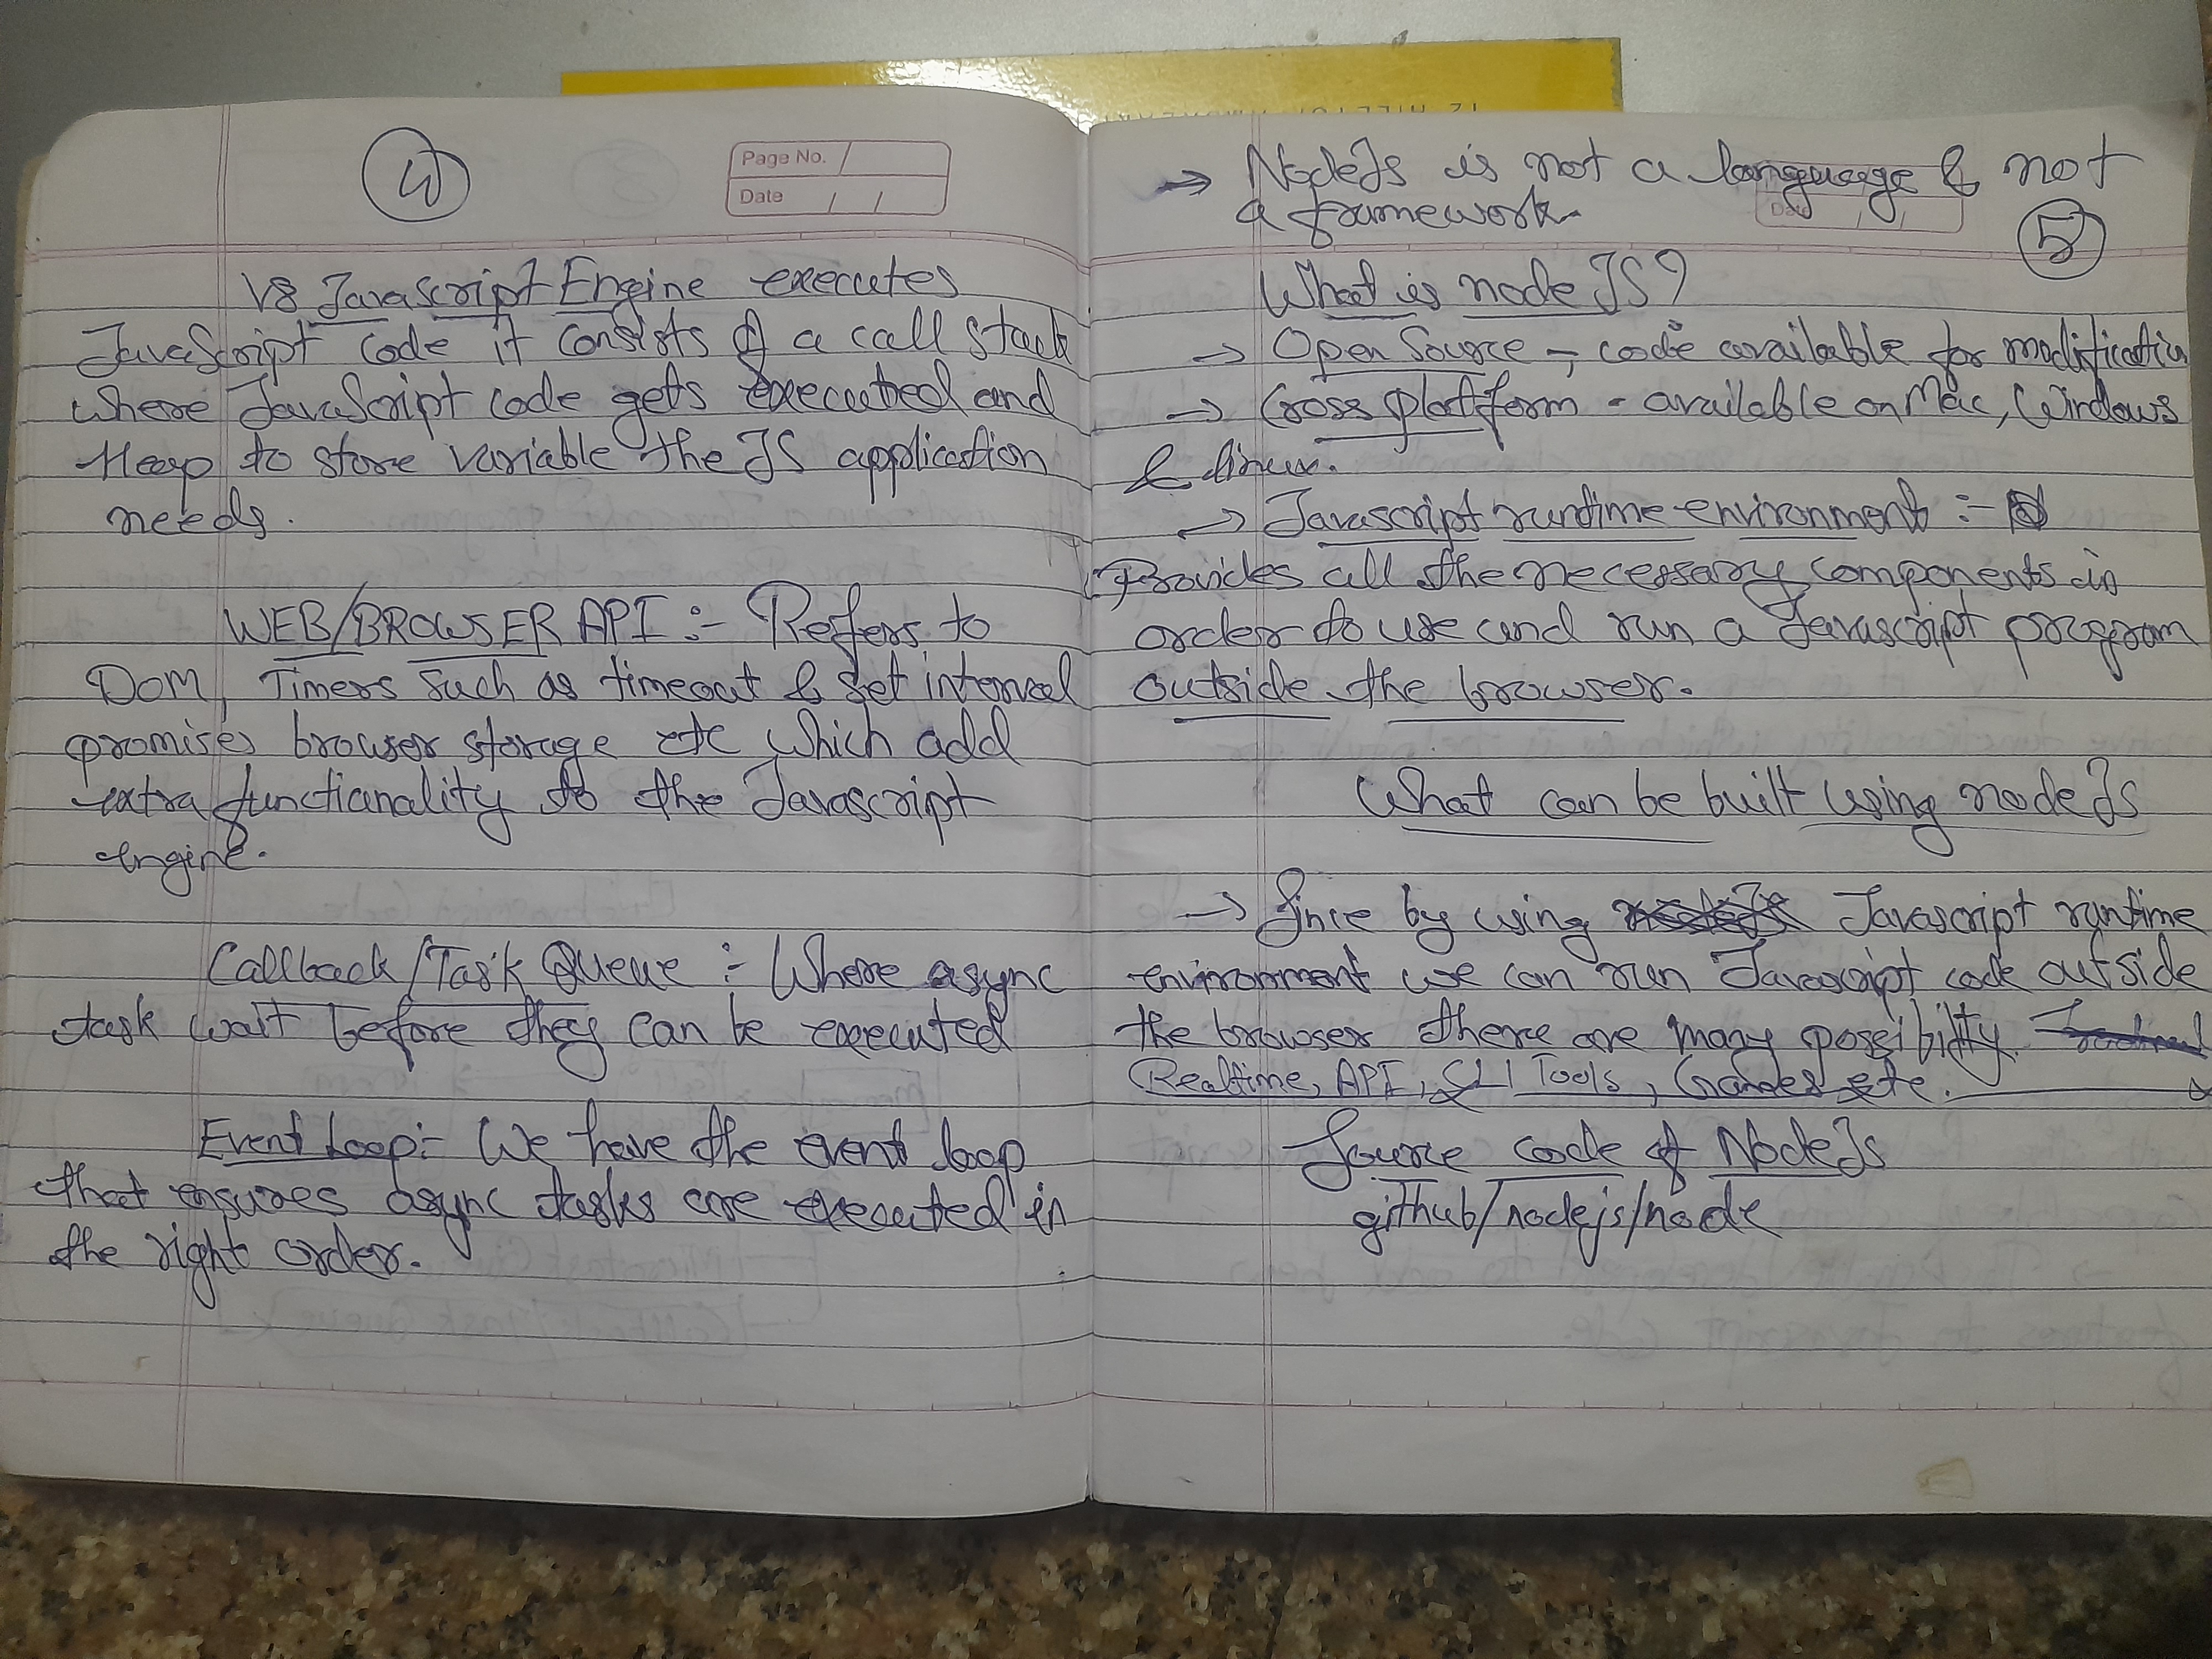 4
Page No.
Date / /
V8 JavaScript Engine executes
JavaScript code it consists of a call stack
where JavaScript code gets executed and
Heap to store variable the JS application
needs.
WEB/BROWSER API :- Refers to
Dom, Timers such as timeout & set interval
promises browser storage etc which add
extra functionality to the Javascript
engine.
Callback/Task Queue :- Where async
task wait before they can be executed
Event Loop:- We have the event loop
that ensures async tasks are executed in
the right order.
→ NodeJs is not a language & not
a framework.
Date / /
5
What is node JS?
→ Open Source - code available for modification
→ Cross platform - available on Mac, Windows
& linux.
→ Javascript runtime environment :-
Provides all the necessary components in
order to use and run a Javascript program
outside the browser.
What can be built using nodeJs
→ Since by using Javascript runtime
environment we can run Javascript code outside
the browser there are many possibilty.
Realtime, API, CLI Tools, Games etc.
Source code of NodeJs
github/nodejs/node